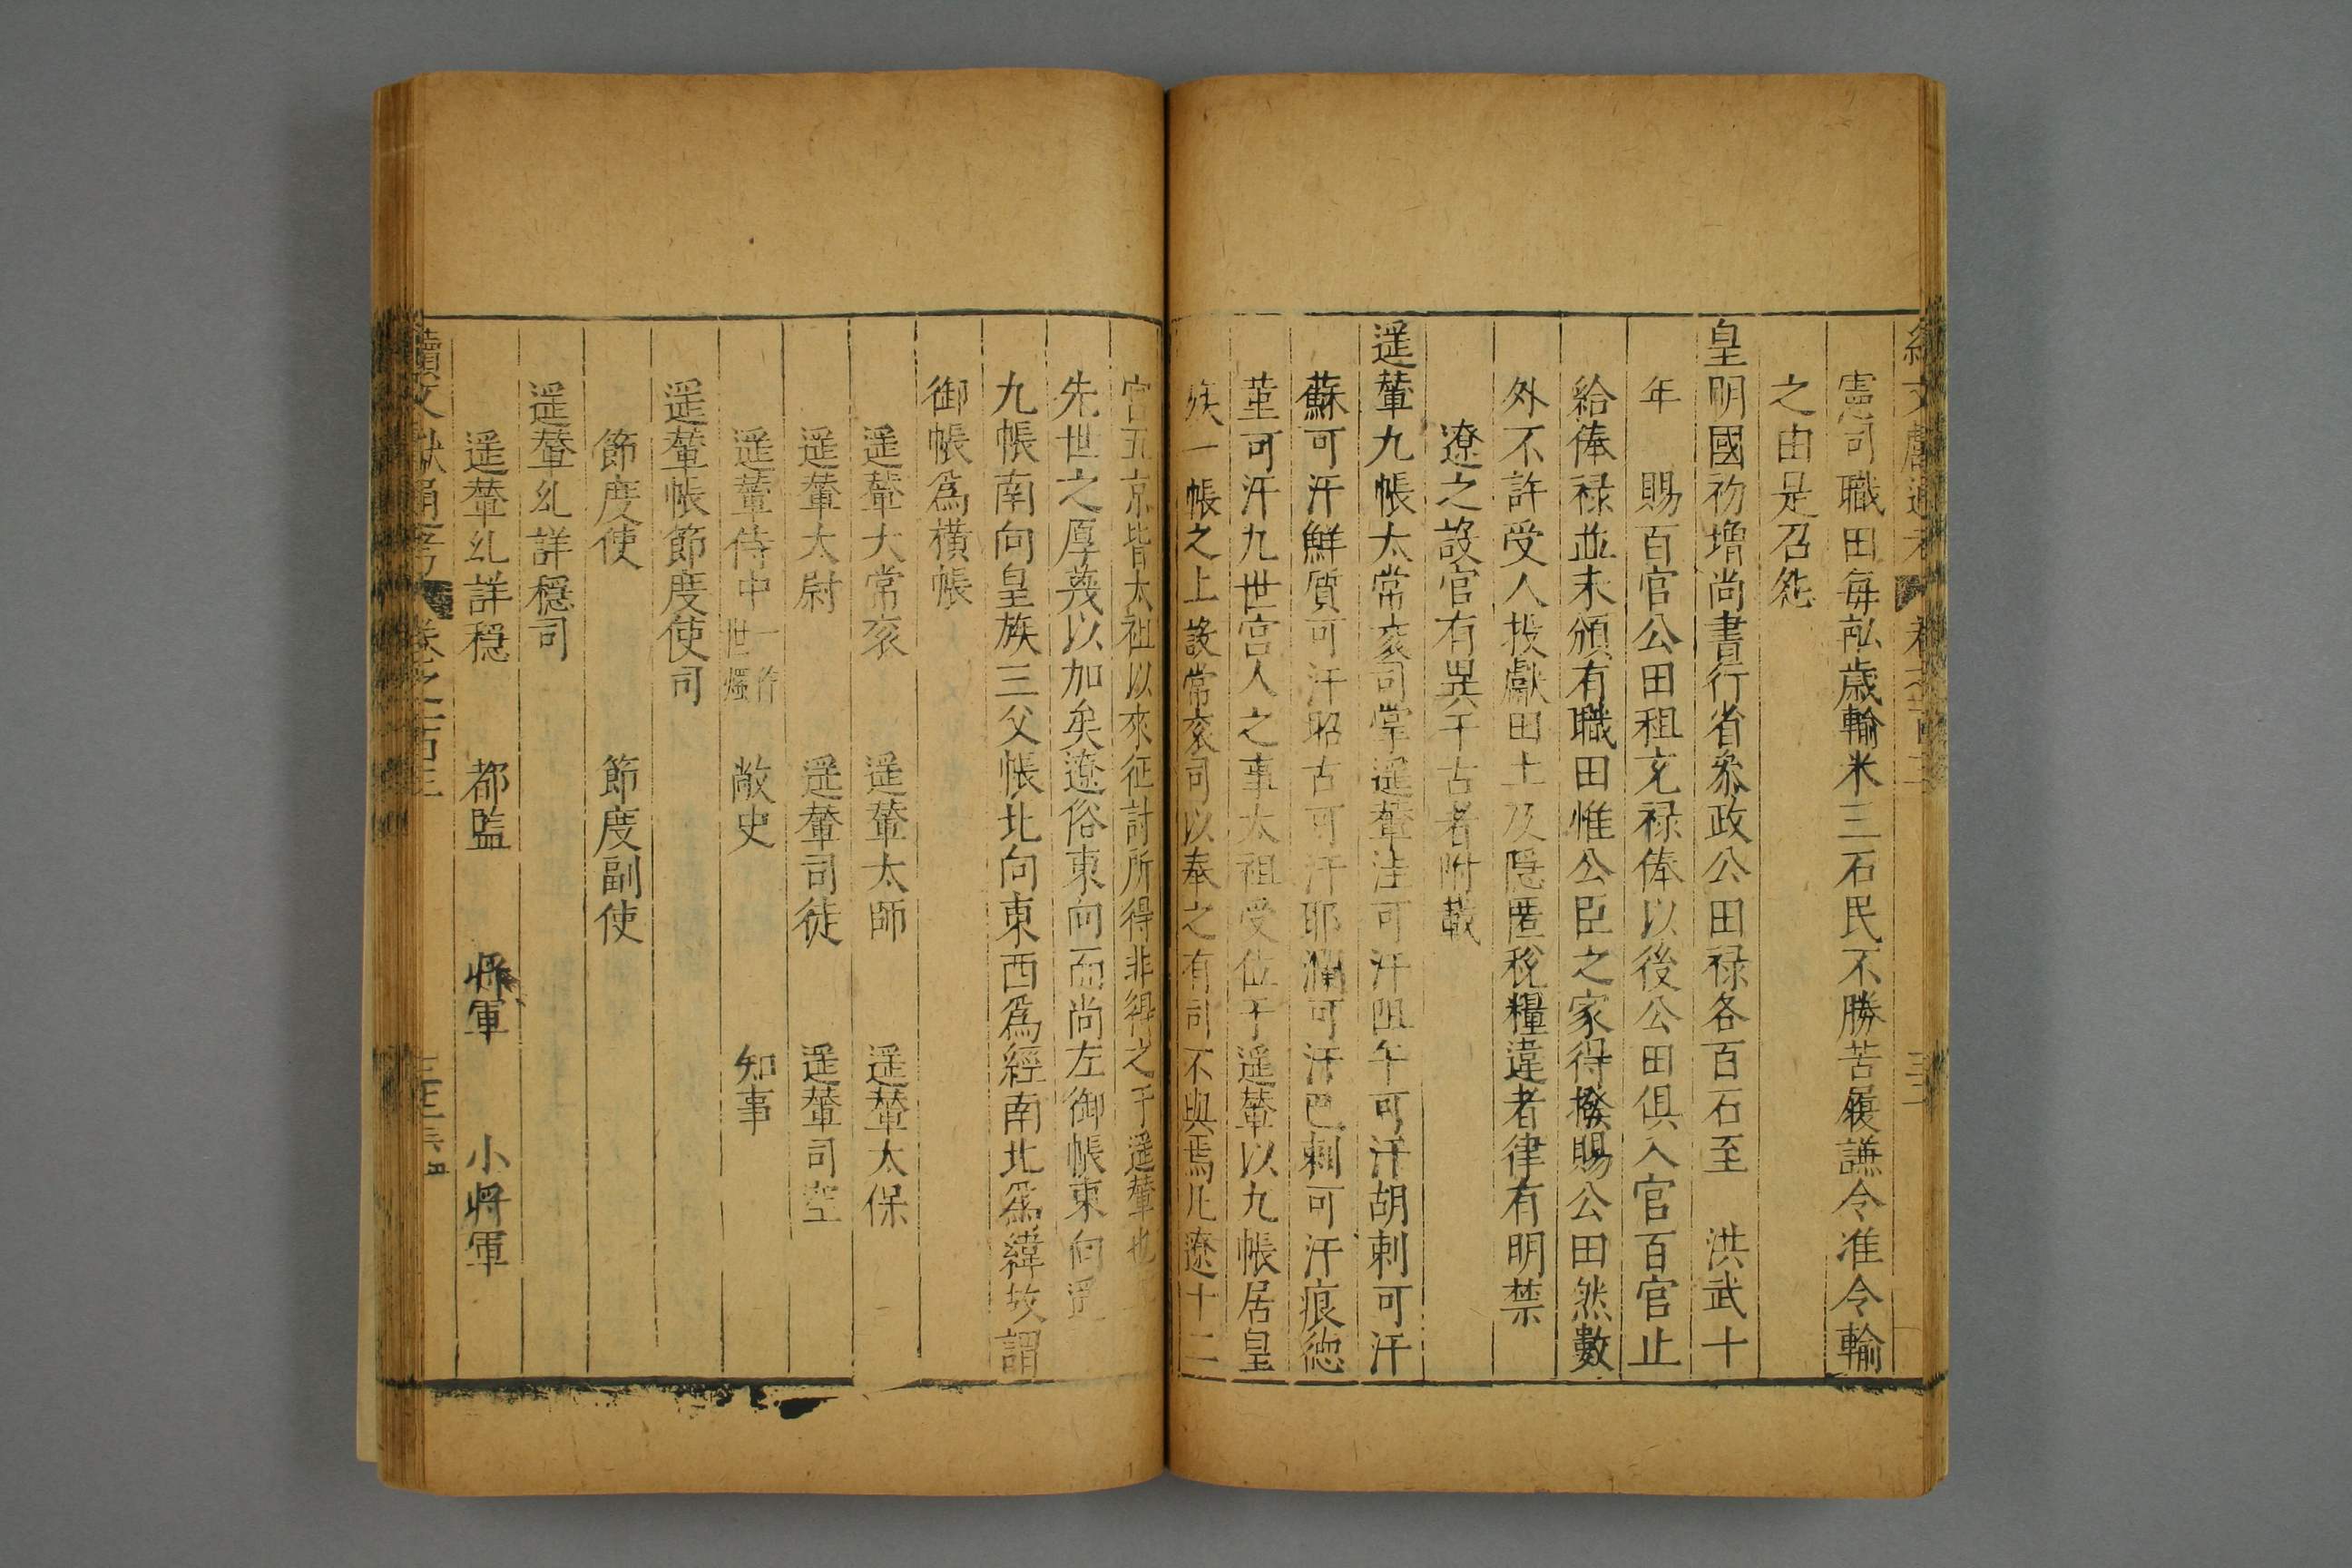 憲司職田每畝歲輸米三石民不勝苦履謙令准令輸
之由是召怨
皇明國初增尚書行省叅政公田祿各百石至 洪武十
年 賜百官公田租充祿俸以後公田俱入官百官止
給俸祿並未頒有職田惟公臣之家得撥賜公田然數
外不許受人投獻田土及隱匿稅糧違者律有明禁
遼之設官有異于古者附載
遥輦九帳太常衮司掌遥輦洼可汗阻午可汗胡剌可汗
蘇可汗鮮質可汗昭古可汗耶瀾可汗巴剌可汗痕德
菫可汗九世宫人之事太祖受位于遥輦以九帳居皇
族一帳之上設常衮司以奉之有司不與焉凡遼十二
宫五京皆太祖以來征討所得非得之于遥輦也
先世之厚義以加矣遼俗東向而尚左御帳東向遥
九帳南向皇族三父帳北向東西爲經南北爲緯故謂
御帳爲橫帳
遥輦大常衮 遥輦太師 遥輦太保
遥輦太尉 遥輦司徒 遥輦司空
遥輦侍中一作世燭 敞史 知事
遥輦帳節度使司
節度使 節度副使
遥輦乣詳穩司
遥輦乣詳穩 都監 將軍 小將軍
續文獻通考 卷之